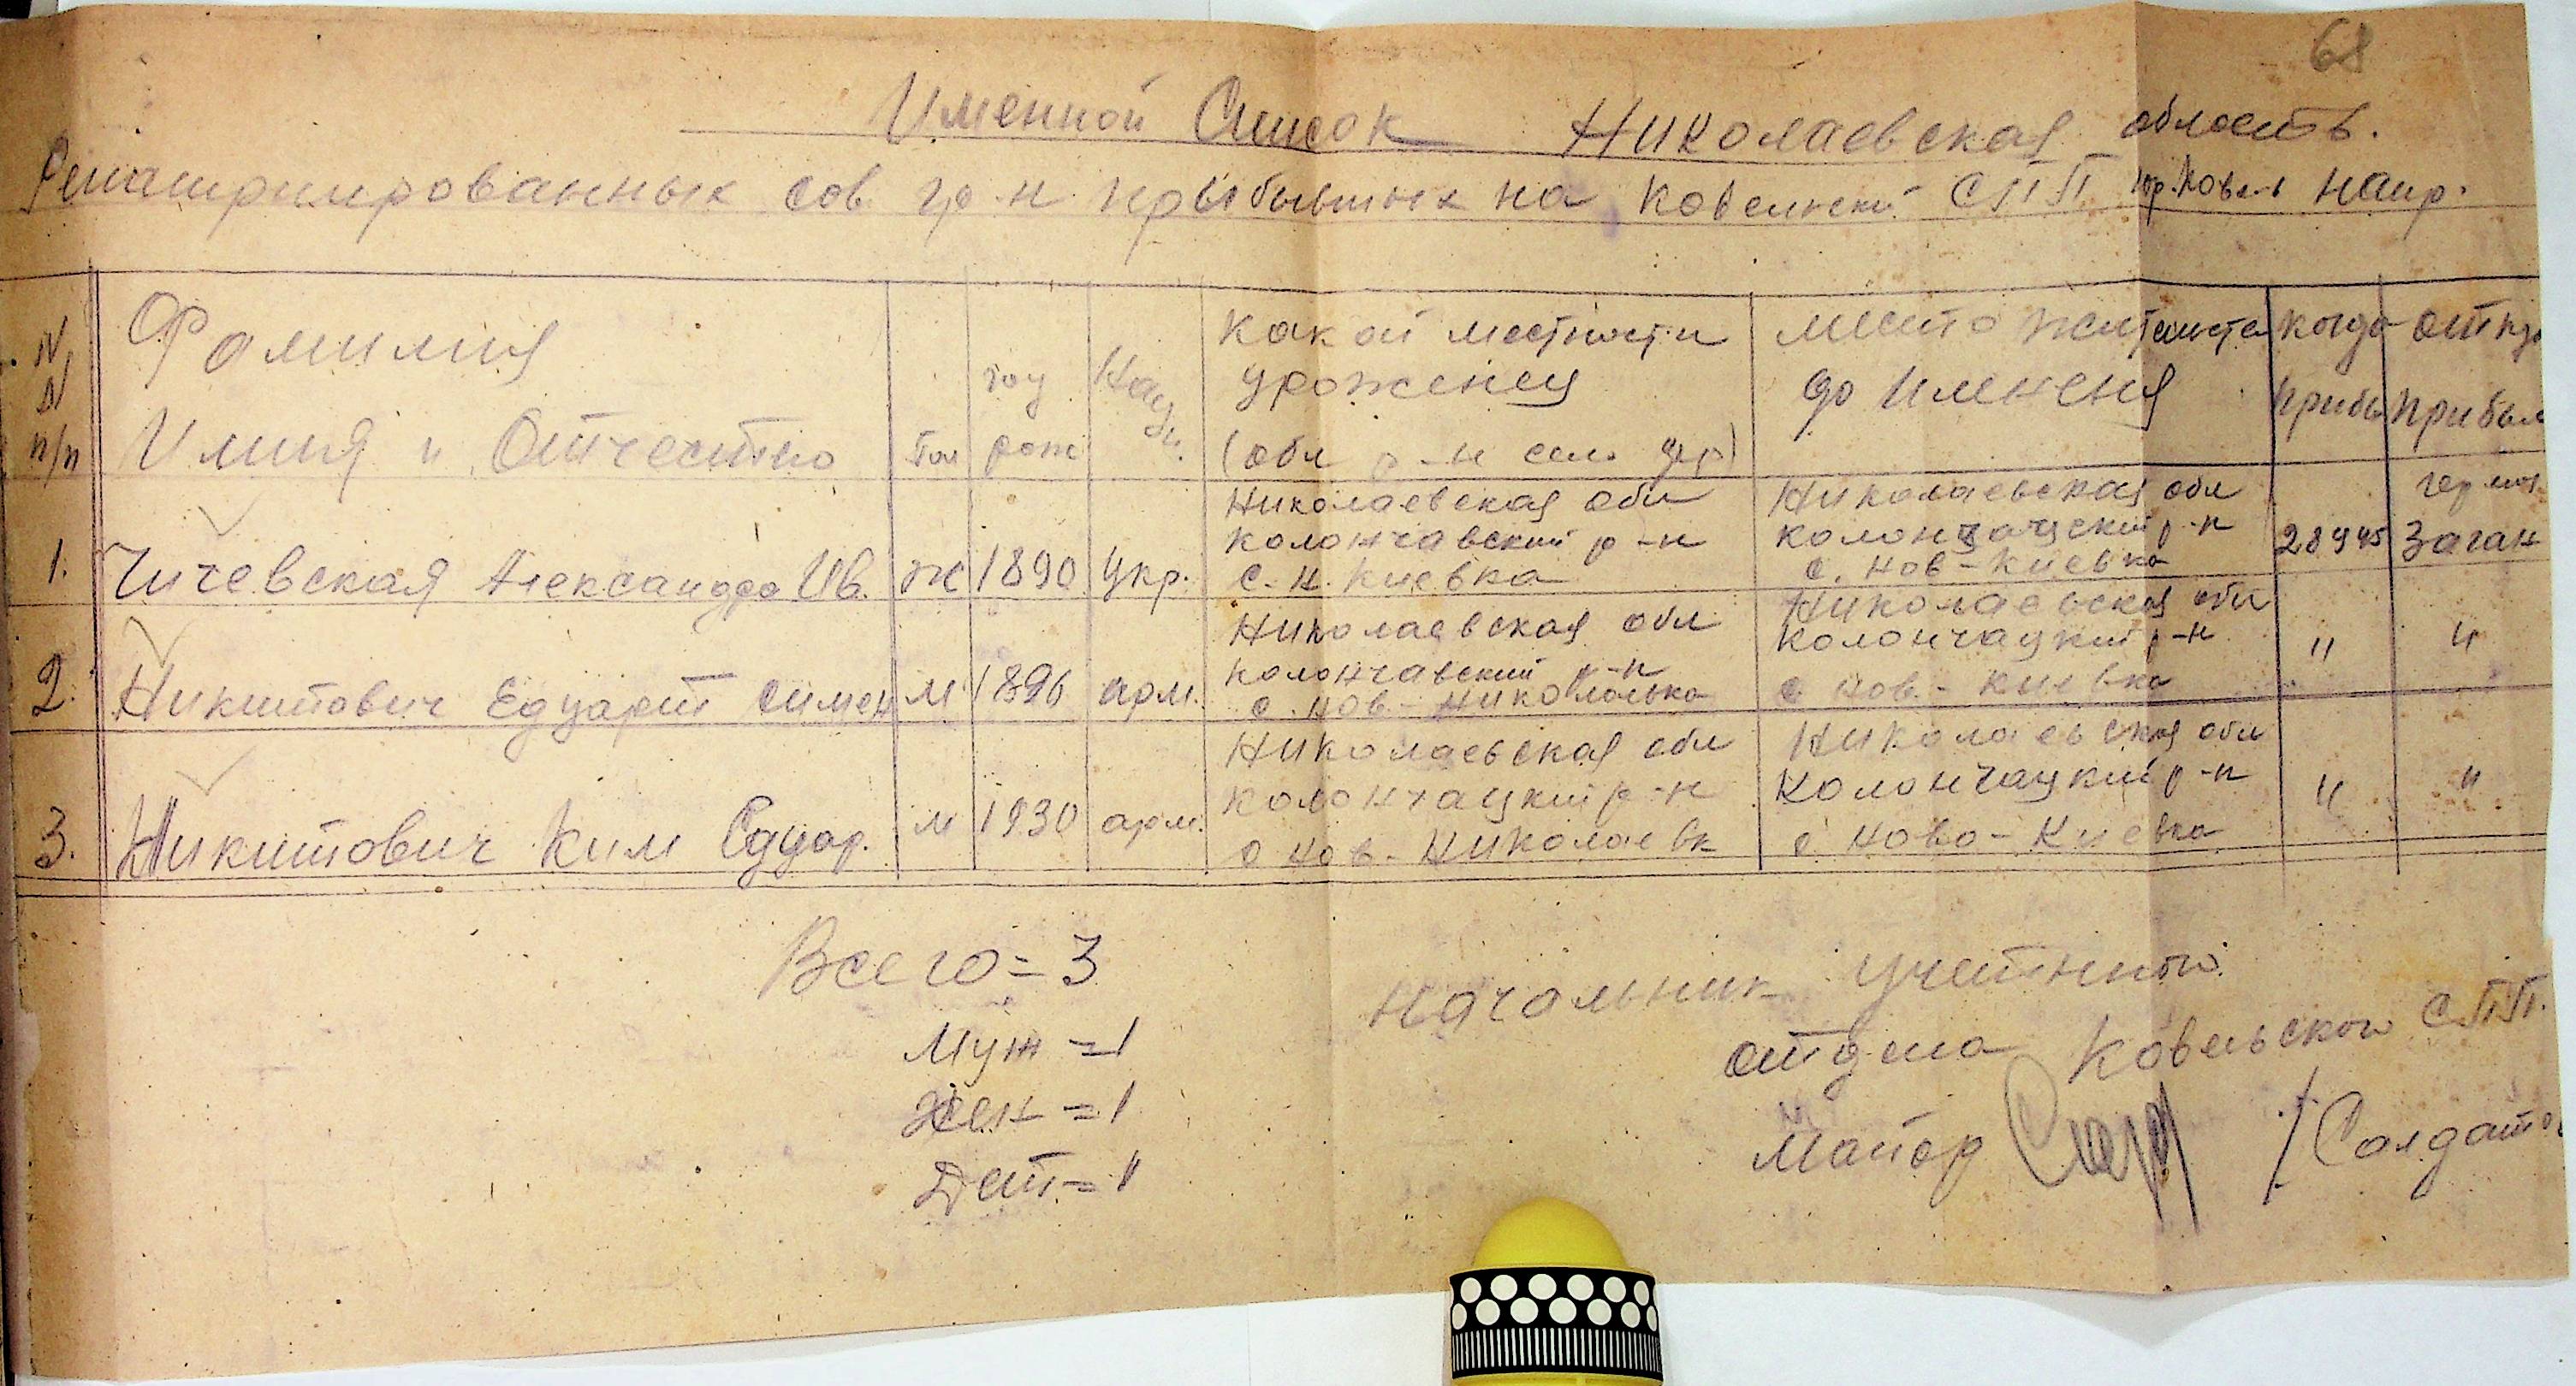 68
Именной Список Николаевская область.
Репатриированных сов гр-н прибывших на Ковельский СПП гор. Ковель напр.
N N п/п
Фамилия Имия и Отчество
Пол
год рож
Нац.
Какой местности уроженец (обл р-н село дер)
место жительства до именения
когда прибы
откуда прибыл
1. Чичевская Александра Ив. ж 1890 укр. Николаевская обл Колончавский р-н с. Н. Киевка Николаевская обл Колончацский р-н с. Нов-Киевка 28 9 45 герман Заган
2. Никитович Едуарт Симен м 1896 арм. Николаевская обл Колончавский р-н с. Нов-Николаевка Николаевская обл Колончацкий р-н с Нов-Киевка " "
3. Никитович Ким Едуар. м 1930 арм. Николаевская обл Колончацкий р-н с Нов-Николаевк Николаевская обл Колончацкий р-н с Ново-Киевка " "
Всего = 3
Муж = 1
Жен = 1
Дет = 1
Начальник учетного
отдела Ковельского СПП.
Майор /Солдатов